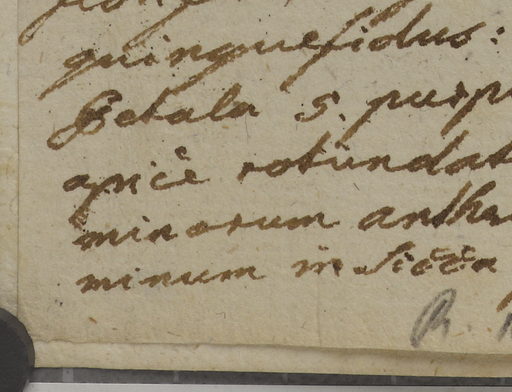 quinquefidus:
Petala 5. purp
apice rotundat
minorum anthe
minum in Sicca
R.